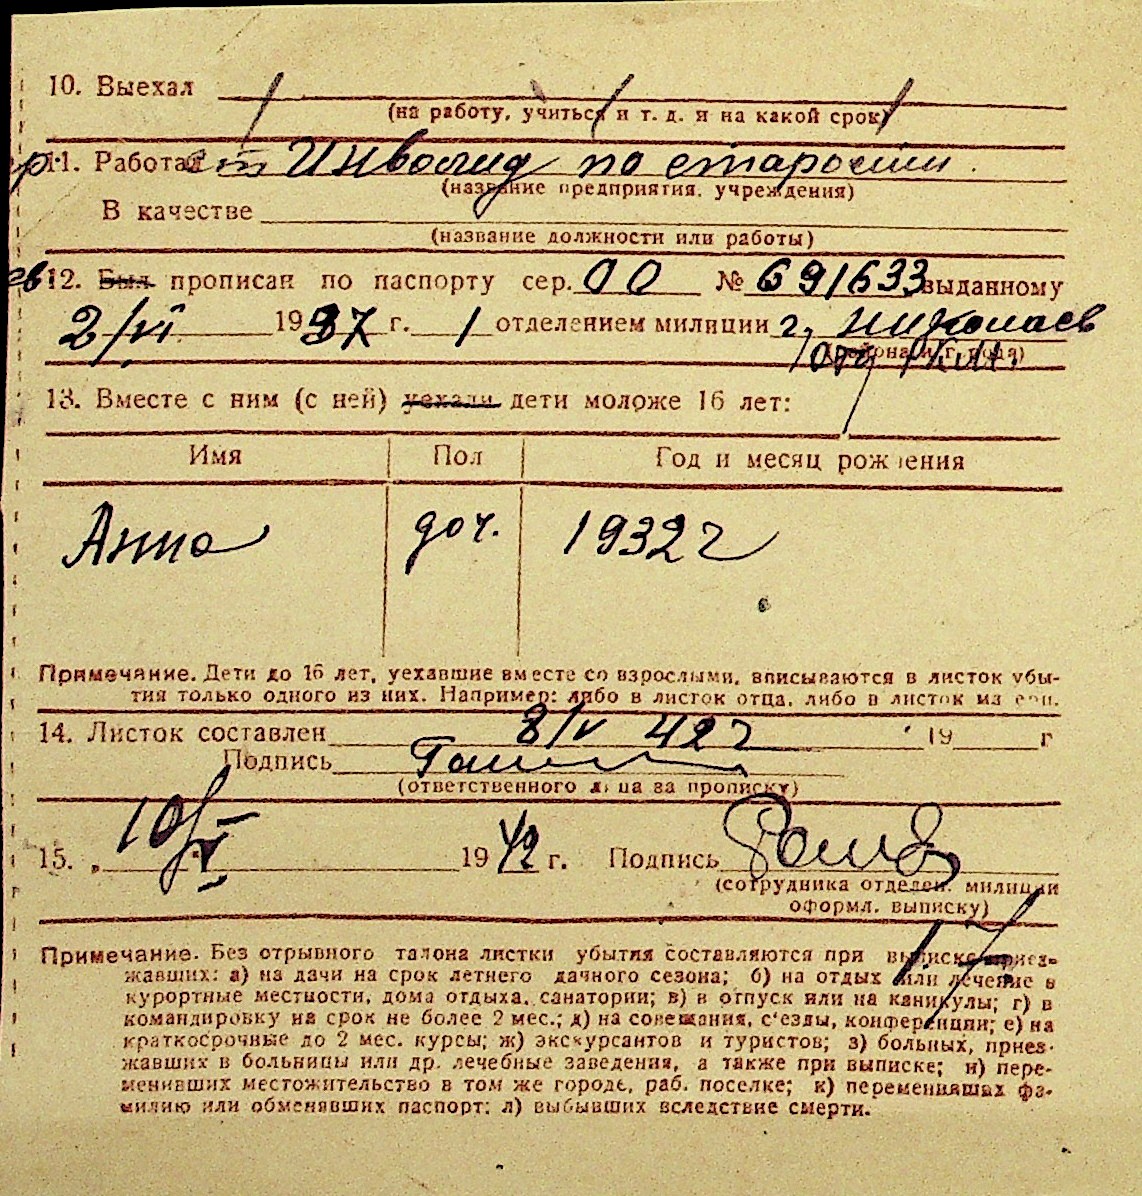 10. Выехал
(на работу, учиться и т. д. и на какой срок)
11. Работал Инвалид по старости.
(название предприятия, учреждения)
В качестве
(название должности или работы)
12. Был прописан по паспорту сер. 00 № 691633 выданному
2/VI 1937 г. 1 отделением милиции г. Николаев
(района и города)
13. Вместе с ним (с ней) уехали дети моложе 16 лет:
Имя Пол Год и месяц рождения
Анна доч. 1932 г
Примечание. Дети до 16 лет, уехавшие вместе со взрослыми, вписываются в листок убы-
тия только одного из них. Например: либо в листок отца, либо в листок матери.
14. Листок составлен 8/V 42 г 19 г
Подпись
(ответственного лица за прописку)
15. „ 10/V 1942 г. Подпись
(сотрудника отделен. милиции
оформл. выписку)
17
Примечание. Без отрывного талона листки убытия составляются при выписке приез-
жавших: а) на дачи на срок летнего дачного сезона; б) на отдых или лечение в
курортные местности, дома отдыха, санатории; в) в отпуск или на каникулы; г) в
командировку на срок не более 2 мес.; д) на совещания, с'езды, конференции; е) на
краткосрочные до 2 мес. курсы; ж) экскурсантов и туристов; з) больных, приез-
жавших в больницы или др. лечебные заведения, а также при выписке; и) пере-
менивших местожительство в том же городе, раб. поселке; к) переменивших фа-
милию или обменявших паспорт; л) выбывших вследствие смерти.